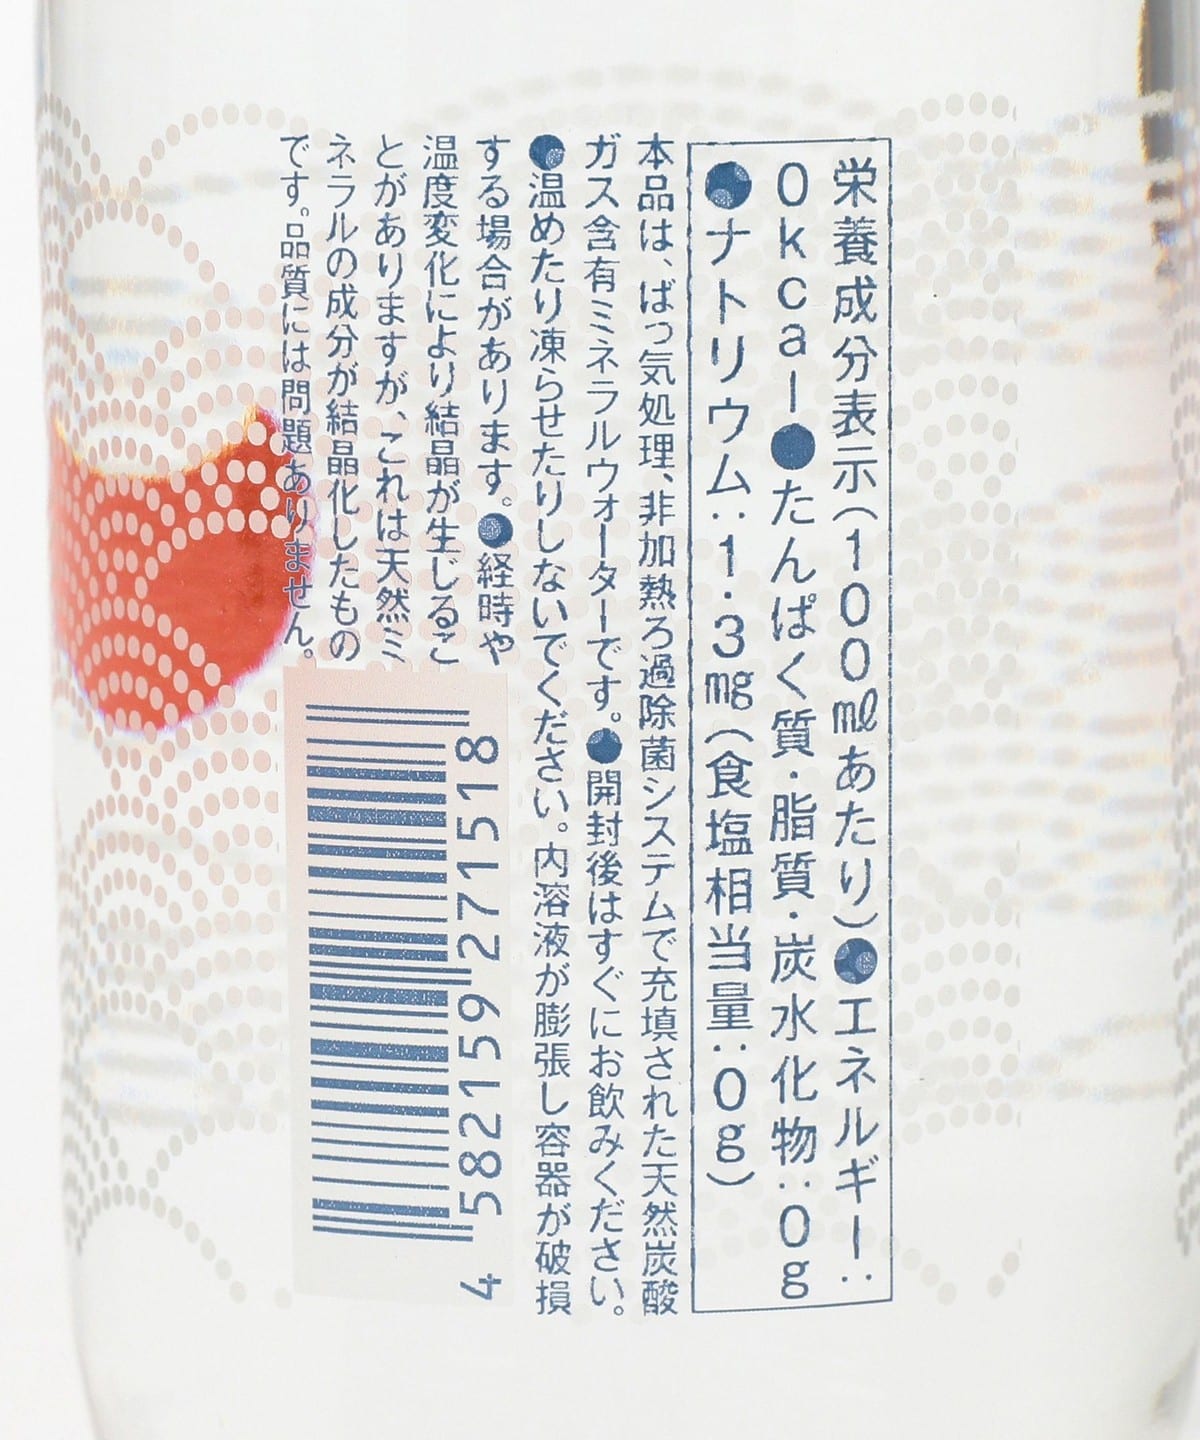 栄養成分表示(100mlあたり)●エネルギー:
0kcal●たんぱく質・脂質・炭水化物:0g
●ナトリウム:1.3mg(食塩相当量:0g)
本品は、ばっ気処理、非加熱ろ過除菌システムで充填された天然炭酸
ガス含有ミネラルウォーターです。●開封後はすぐにお飲みください。
●温めたり凍らせたりしないでください。内溶液が膨張し容器が破損
する場合があります。●経時や
温度変化により結晶が生じるこ
とがありますが、これは天然ミ
ネラルの成分が結晶化したもの
です。品質には問題ありません。
4582159271518